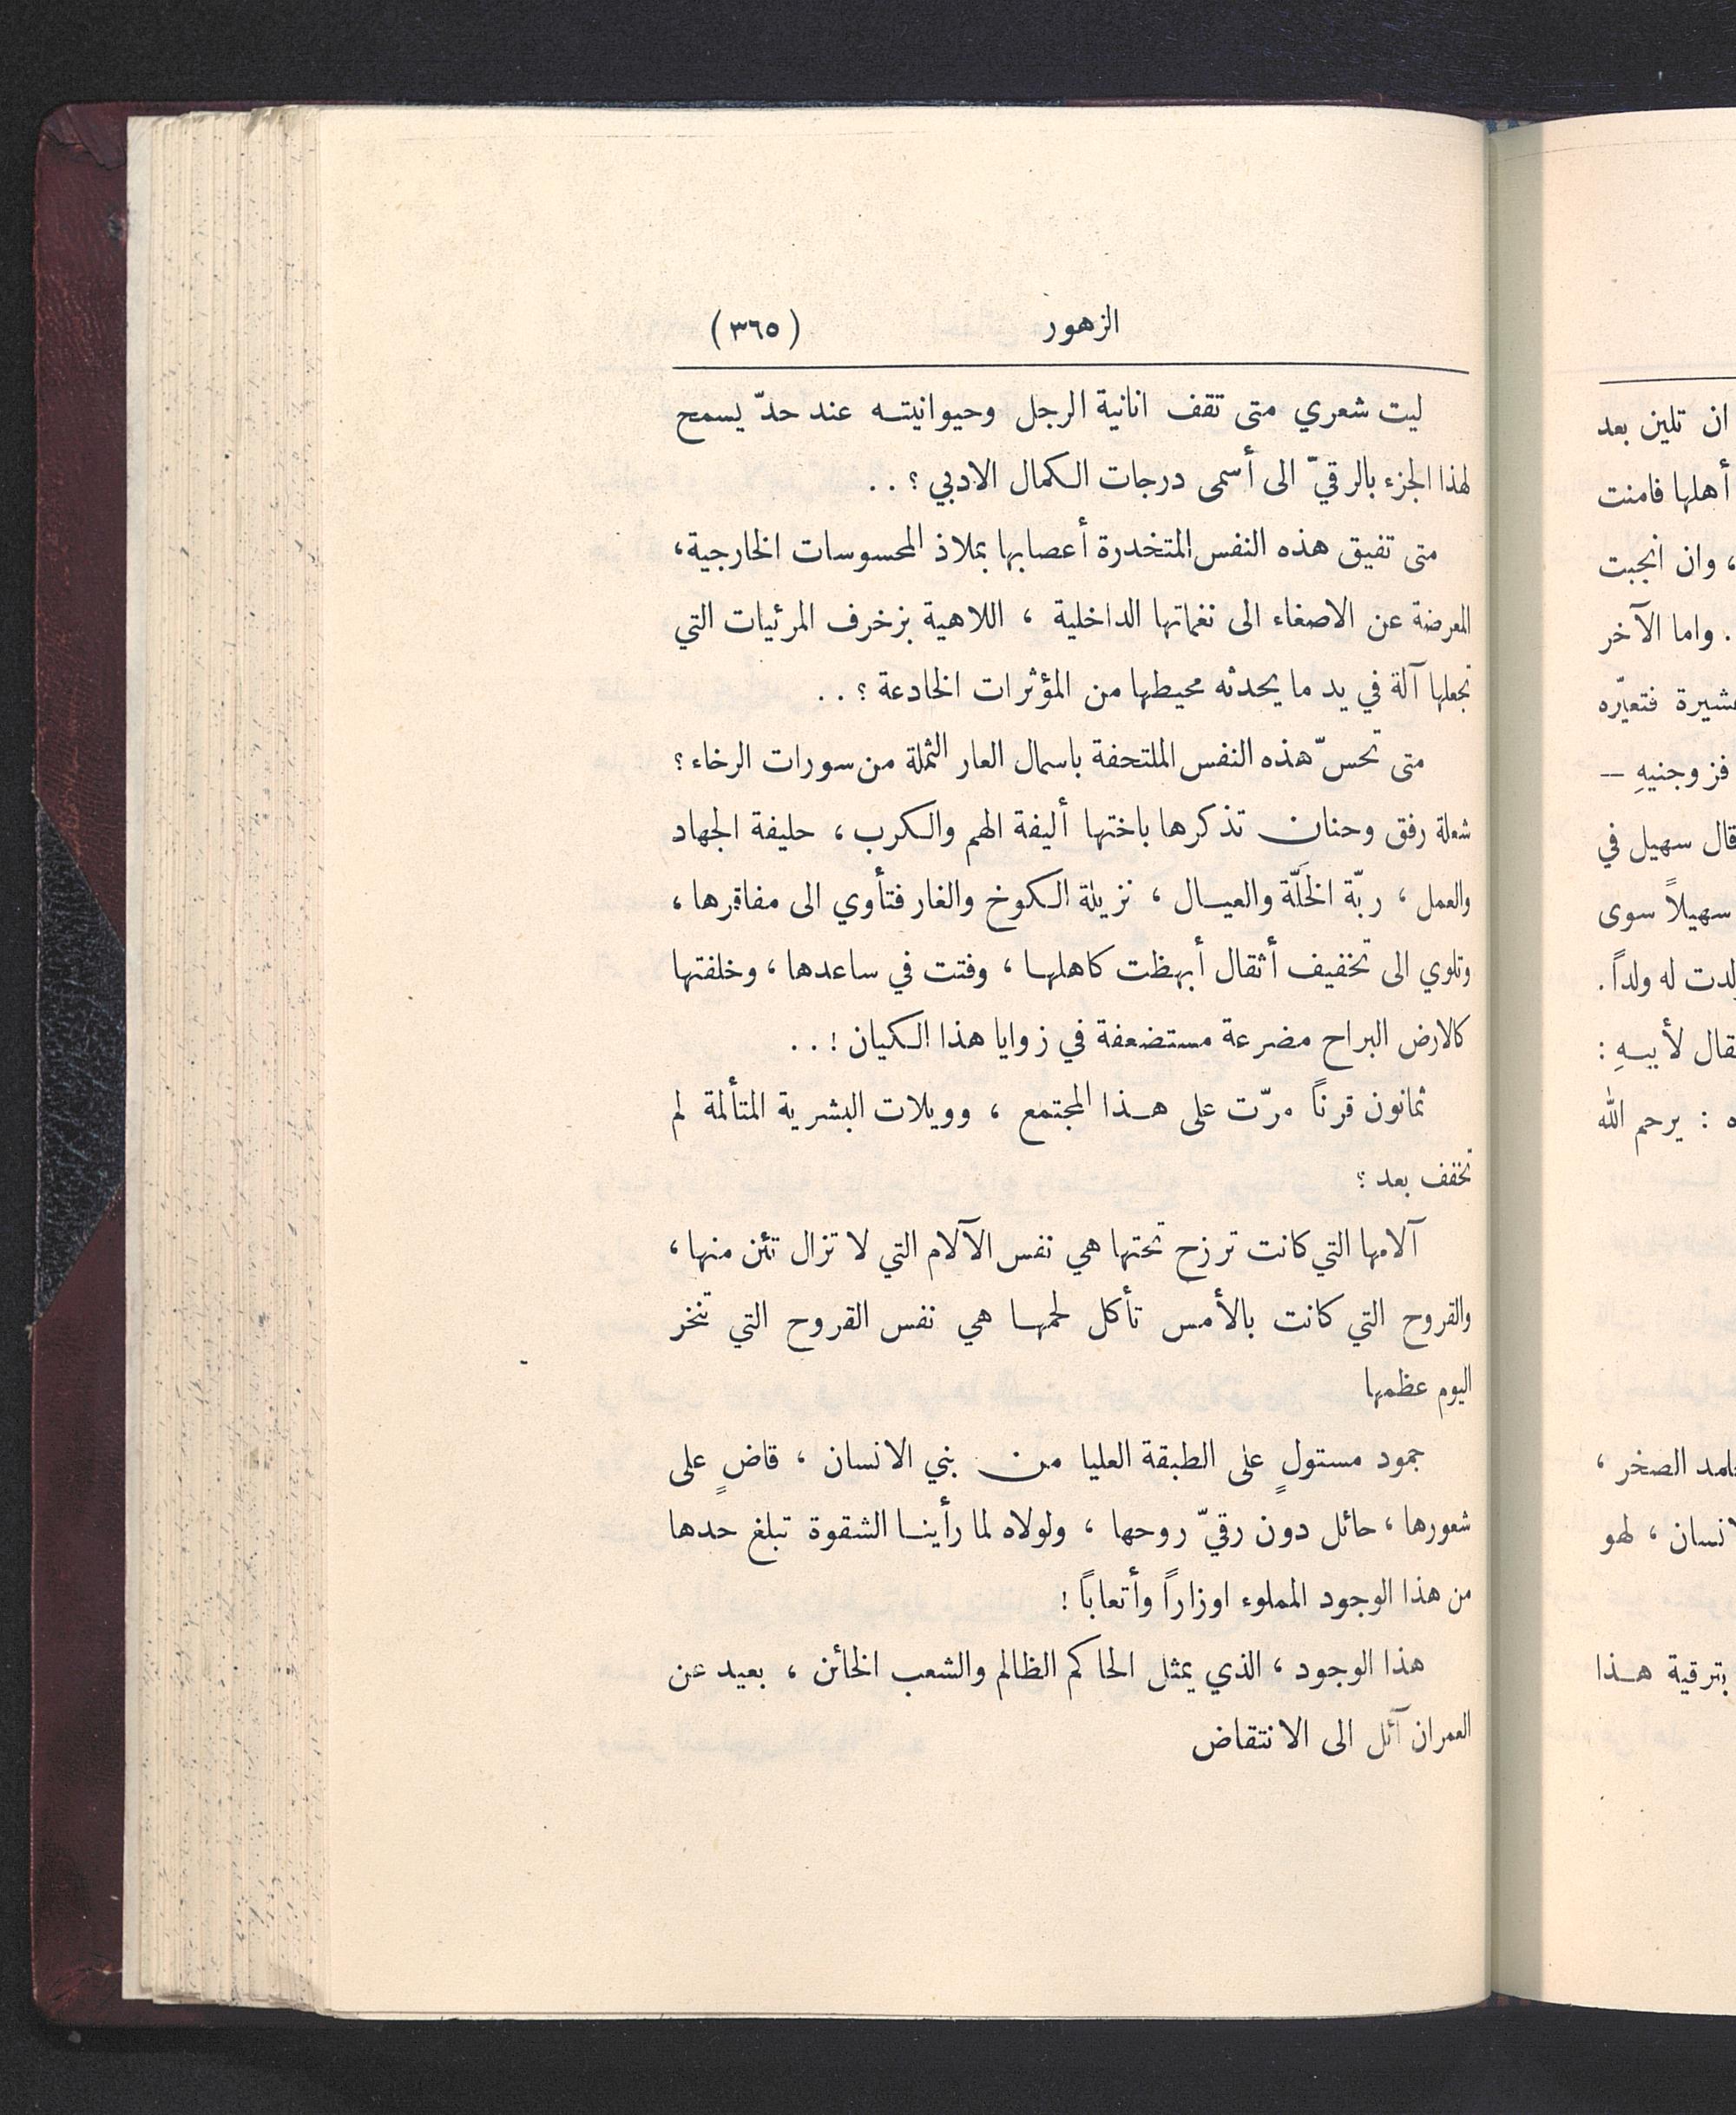 الزهور
(٣٦٥)
ليت شعري متى تقف انانية الرجل وحيوانيته عند حدّ يسمح
لهذا الجزء بالرقيّ الى أسمى درجات الكمال الادبي ؟ . .
متى تفيق هذه النفس المتخدرة أعصابها بملاذ المحسوسات الخارجية ،
المعرضة عن الاصغاء الى نغماتها الداخلية ، اللاهية بزخرف المرئيات التي
تجعلها آلة في يد ما يحدثه محيطها من المؤثرات الخادعة ؟ . .
متى تحسّ هذه النفس الملتحفة باسمال العار الثملة من سورات الرخاء ؟
شعلة رفق وحنان تذكرها باختها أليفة الهم والكرب ، حليفة الجهاد
والعمل ، ربّة الخَلّة والعيال ، نزيلة الكوخ والغار فتأوي الى مفاقرها ،
وتلوي الى تخفيف أثقال أبهظت كاهلها ، وفتت في ساعدها ، وخلفتها
كالارض البراح مضرعة مستضعفة في زوايا هذا الكيان ! . .
ثمانون قرناً مرّت على هذا المجتمع ، وويلات البشرية المتألمة لم
تخفف بعد ؟
آلامها التي كانت ترزح تحتها هي نفس الآلام التي لا تزال تئن منها ،
والقروح التي كانت بالأمس تأكل لحمها هي نفس القروح التي تنخر
اليوم عظمها
جمود مستولٍ على الطبقة العليا من بني الانسان ، قاضٍ على
شعورها ، حائل دون رقيّ روحها ، ولولاه لما رأينا الشقوة تبلغ حدها
من هذا الوجود المملوء اوزاراً وأتعاباً !
هذا الوجود ، الذي يمثل الحاكم الظالم والشعب الخائن ، بعيد عن
العمران آئل الى الانتقاض
ان تلين بعد
أهلها فامنت
، وان انجبت
. واما الآخر
فتعيّره
فزوجنيهِ —
قال سهيل في
سهيلاً سوى
له ولداً .
لأبيهِ :
: يرحم الله
الصخر ،
، لهو
بترقية هذا